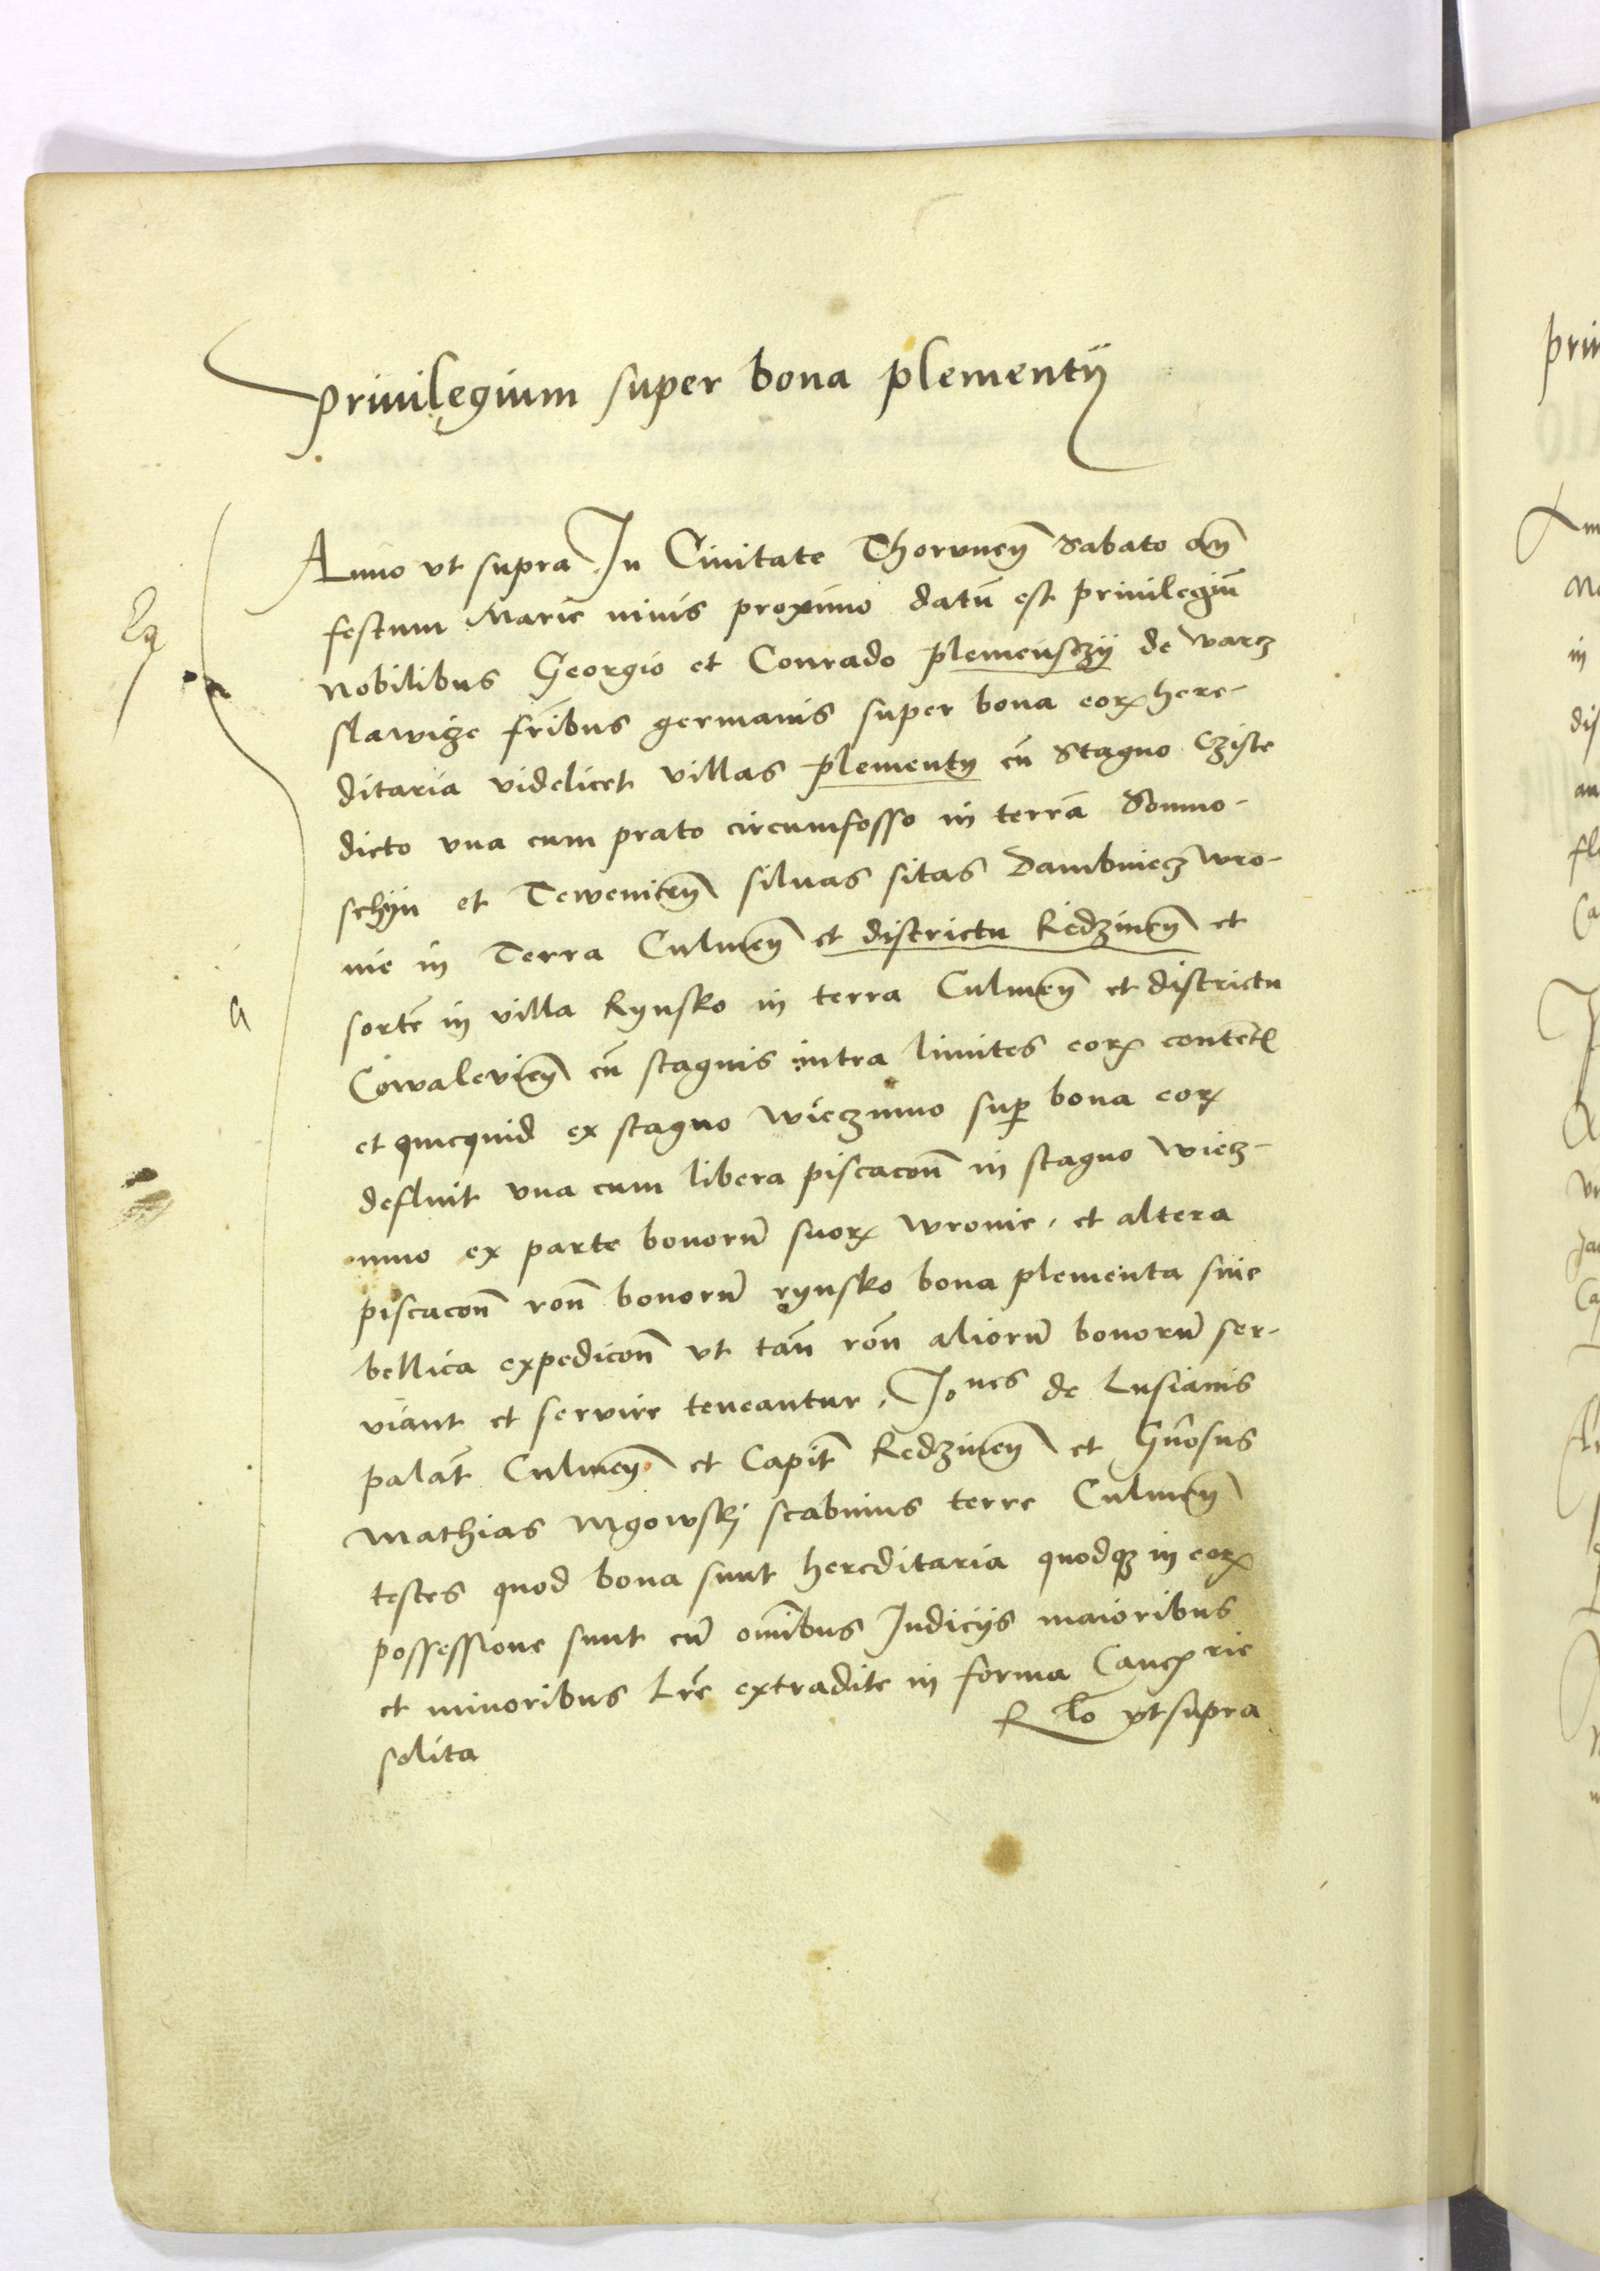 Priuilegium super bona plementÿ
Anno vt supra In Ciuitate Thorunen̄ Sabato an̄
festum Marie niuis proximo datū est priuilegiū
Nobilibus Georgio et Conrado plemensczÿ de warcz
slawicze fr̄ibus germanis super bona eorꝝ here-
ditaria videlicet villas plementÿ cū Stagno Cziste
dicto vna cum prato circumfosso in terra Somno-
schÿn et Teweniten̄ siluas sitas Dambniecz wro-
nie in Terra Culmen̄ et districtu Redzinen̄ et
sortē in villa Rynsko in terra Culmen̄ et districtu
Cowalevien̄ cū stagnis intra limites eorꝝ content̄
et quicquid ex stagno wieczmno sup̄ bona eorꝝ
defluit vna cum libera piscacōn̄ in stagno wiecz-
mno ex parte bonorū suorꝝ wronie, et altera
piscacōn̄ rōn̄ bonorū rynsko bona plementa siue
bellica expedicōn̄ vt tan̄ rōn̄ aliorū bonorū ser-
viant et seruire teneantur, Jones de Lusianis
palat̄ Culmen̄ et Capit̄ Redzinen̄ et Gn̄osus
Mathias Mgowskj scabinus terre Culmen̄
testes quod bona sunt hereditaria quodqꝫ in eorꝝ
possessione sunt cū om̄ibus Judicijs maioribus
et minoribus Lr̄e extradite in forma Cancꝝrie
solita
R lo vt supra